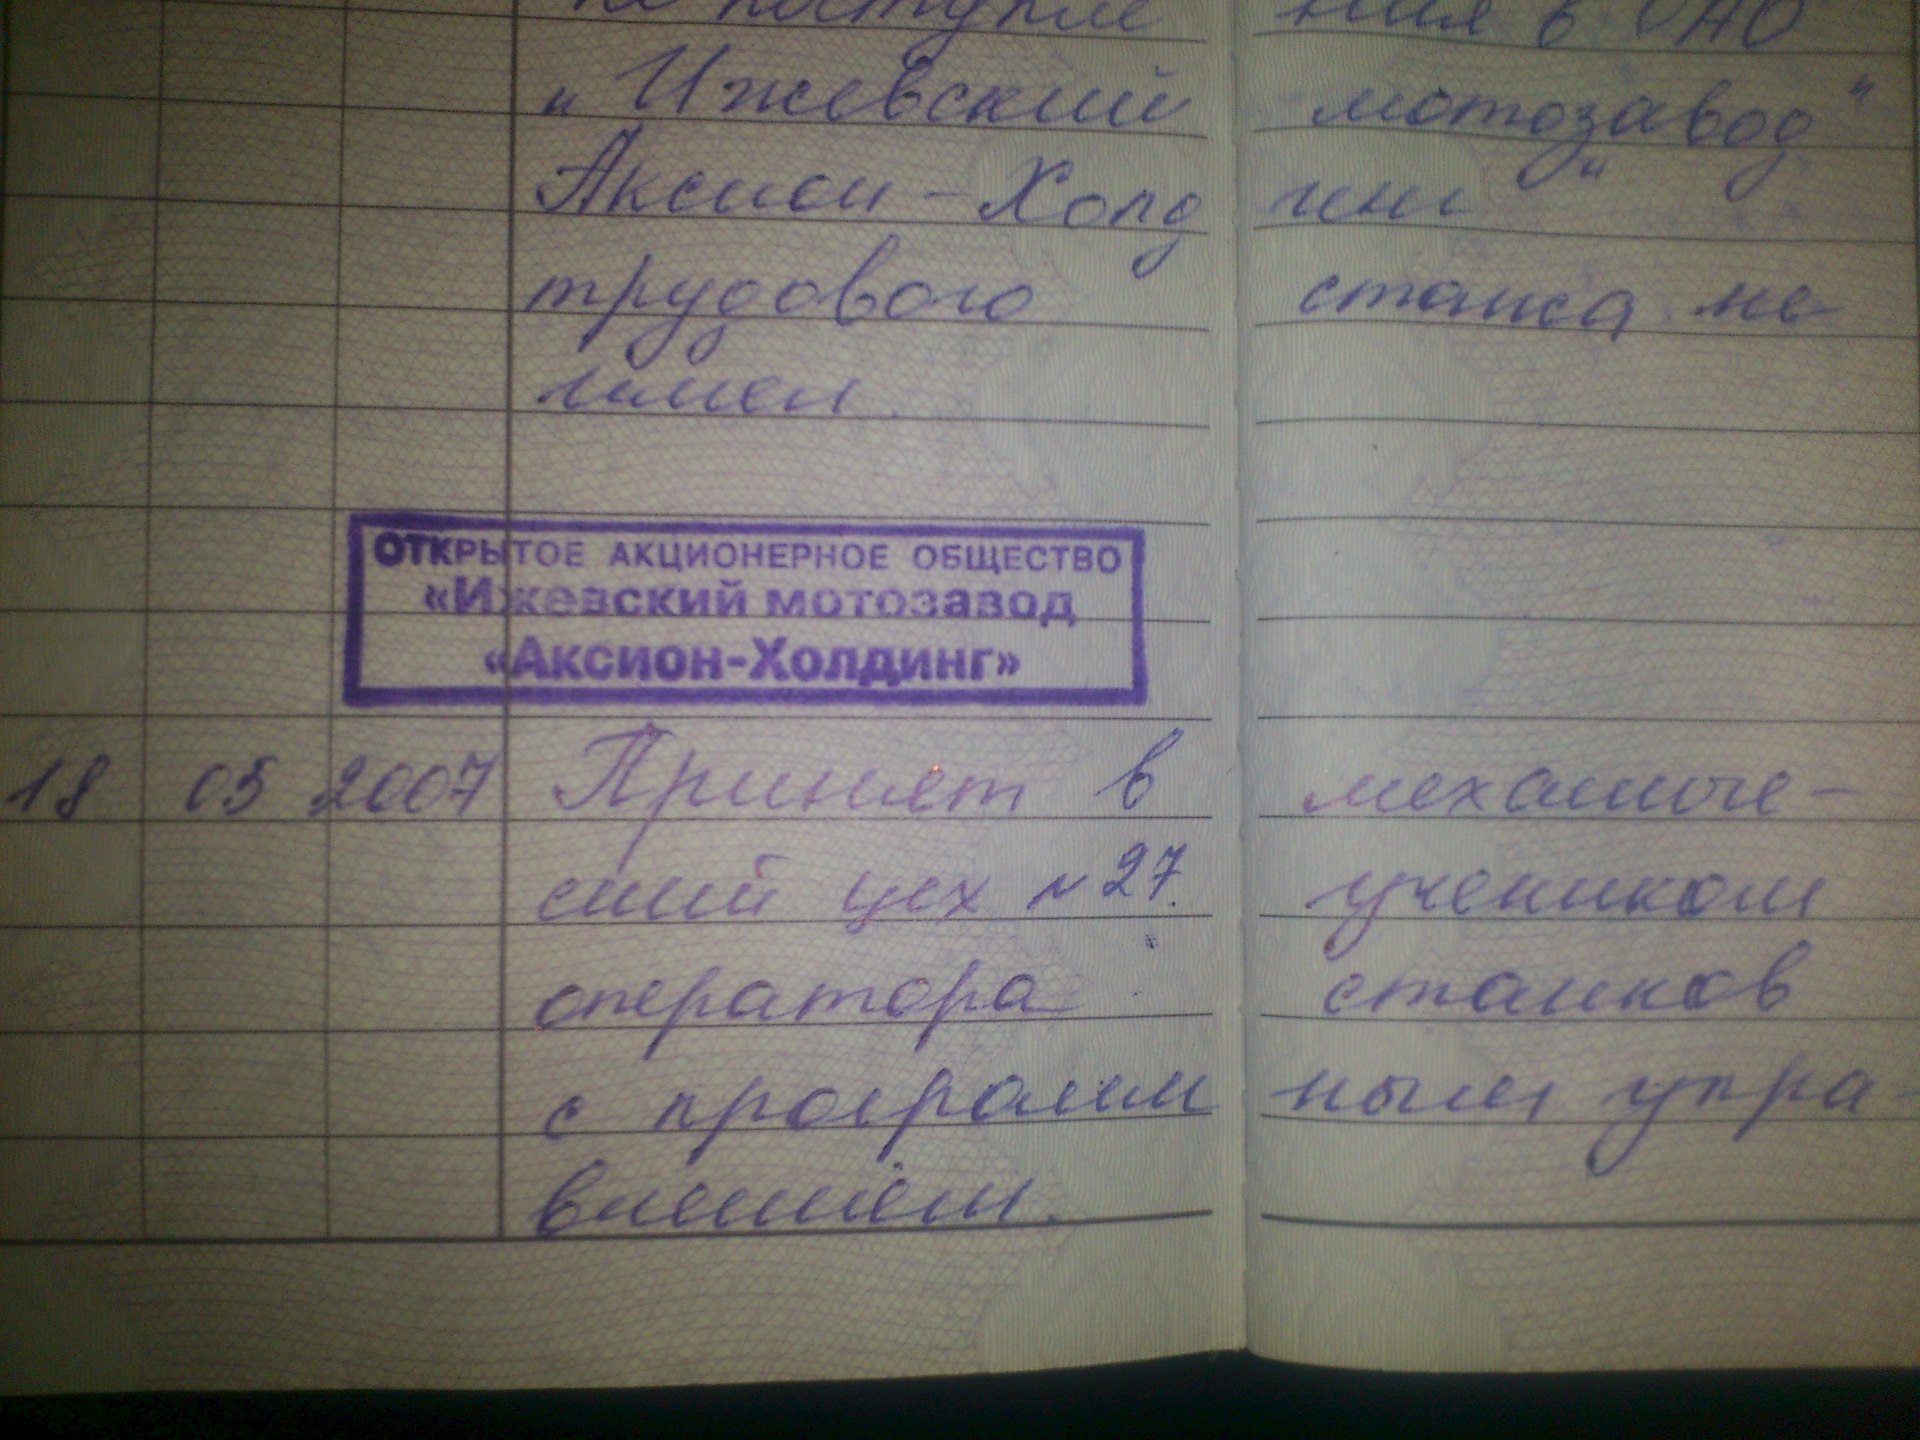 поступления в ОАО
„Ижевский мотозавод"
Аксион-Холдинг"
трудового стажа не
имел.
ОТКРЫТОЕ АКЦИОНЕРНОЕ ОБЩЕСТВО
«Ижевский мотозавод
«Аксион-Холдинг»
18 05 2007 Принят в механиче-
ский цех N27. учеником
оператора станков
с программным упра-
влением.